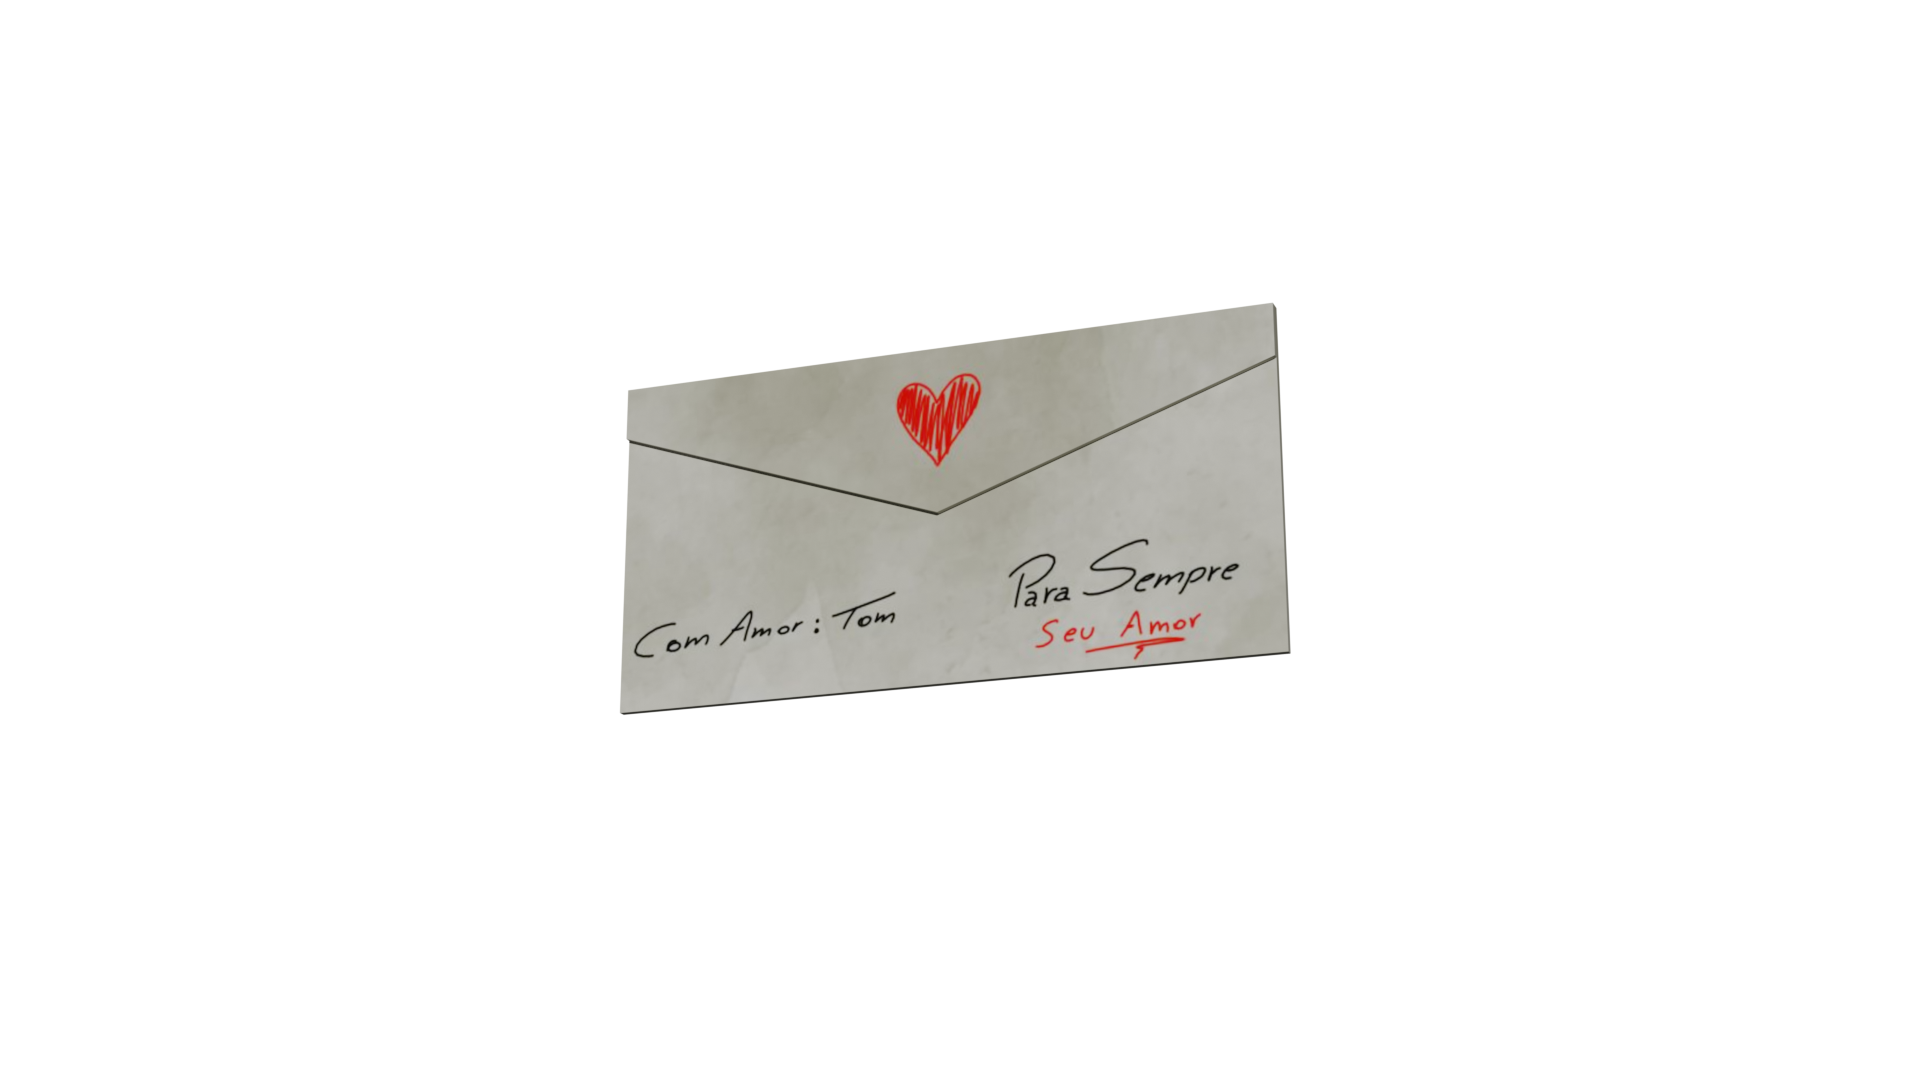 Com Amor: Tom
Para Sempre
Seu Amor